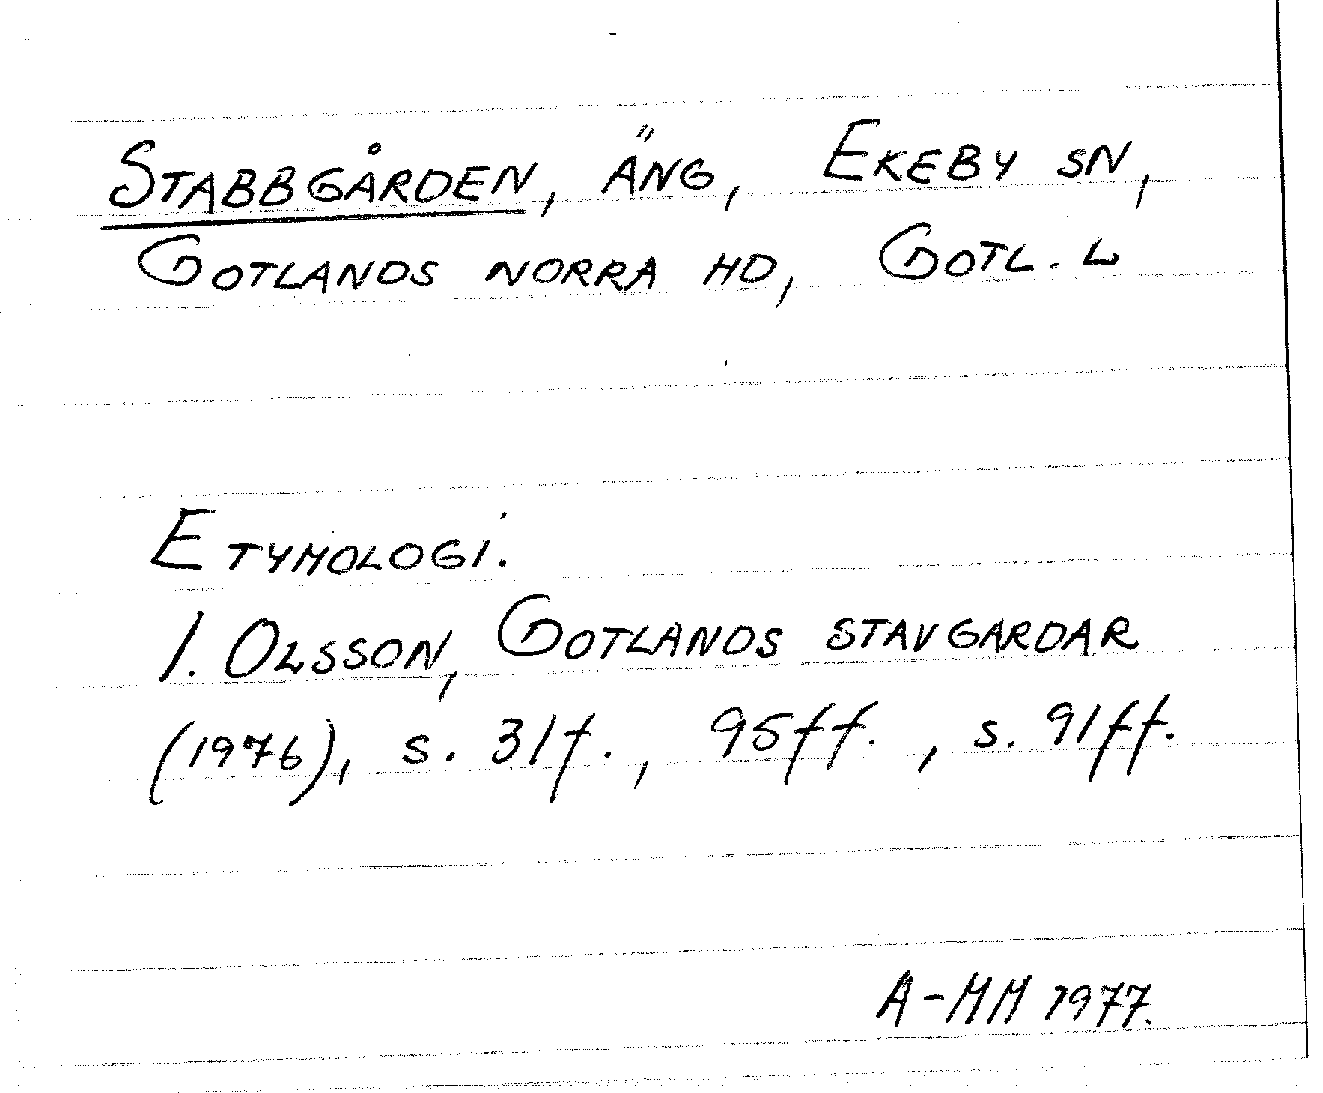 STABBGÅRDEN, ÄNG, EKEBY SN,
GOTLANDS NORRA HD, GOTL. L
ETYMOLOGI.
I. OLSSON, GOTLANDS STAVGARDAR
(1976), s. 31f., 95ff., s. 91ff.
A-MM 1977.